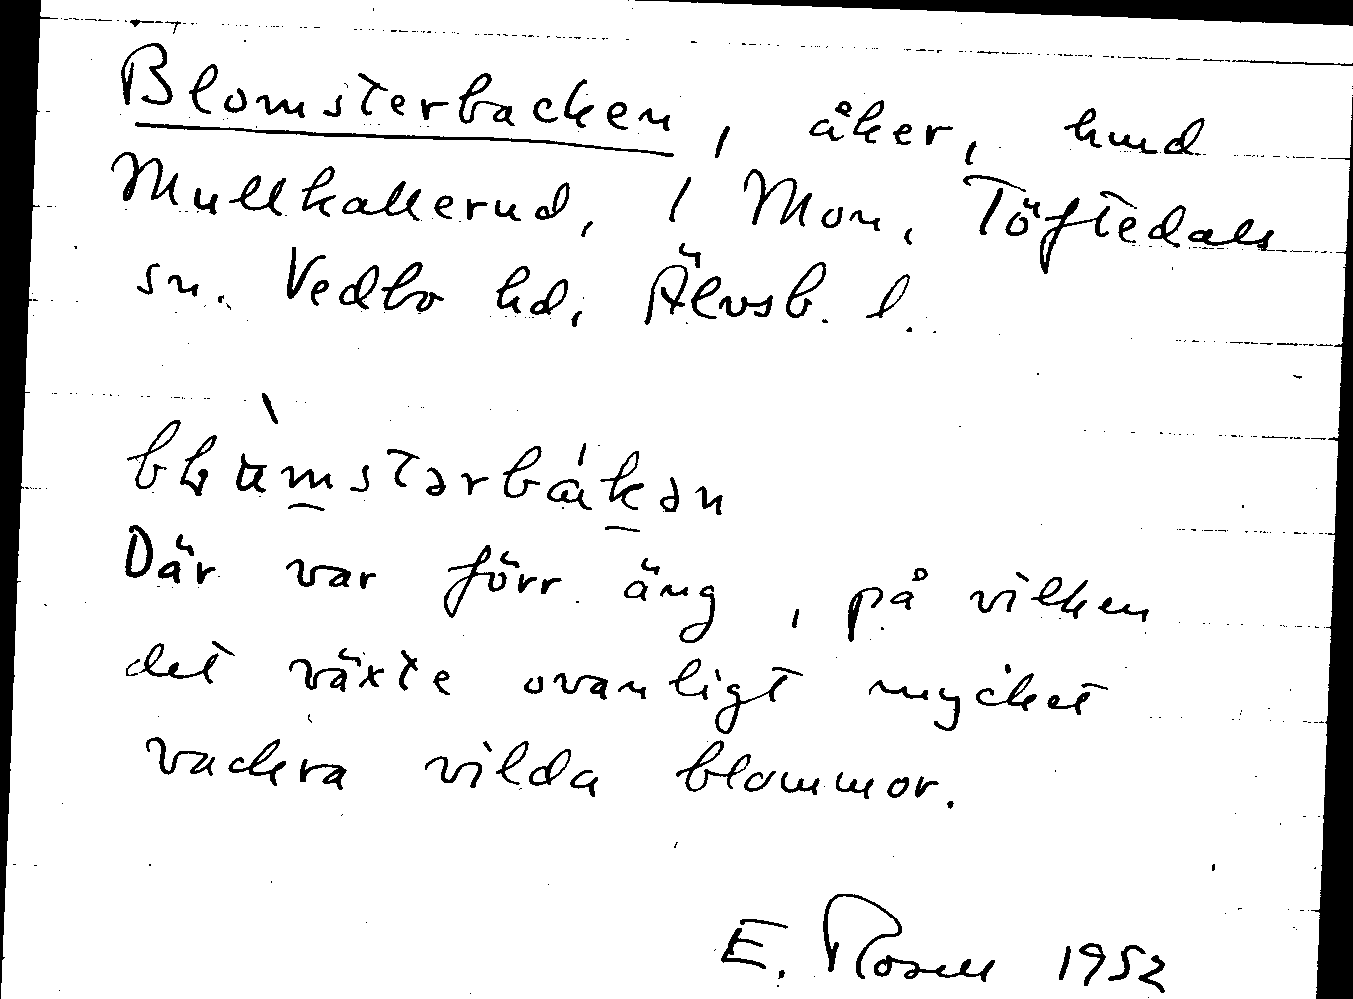 Blomsterbacken, åker, hmd
Mullkallerud, 1 Mon, Töftedals
sn. Vedbo hd, Älvsb. l.
Där var förr äng, på vilken
det växte ovanligt mycket
vackra vilda blommor.
E. Rosell 1952